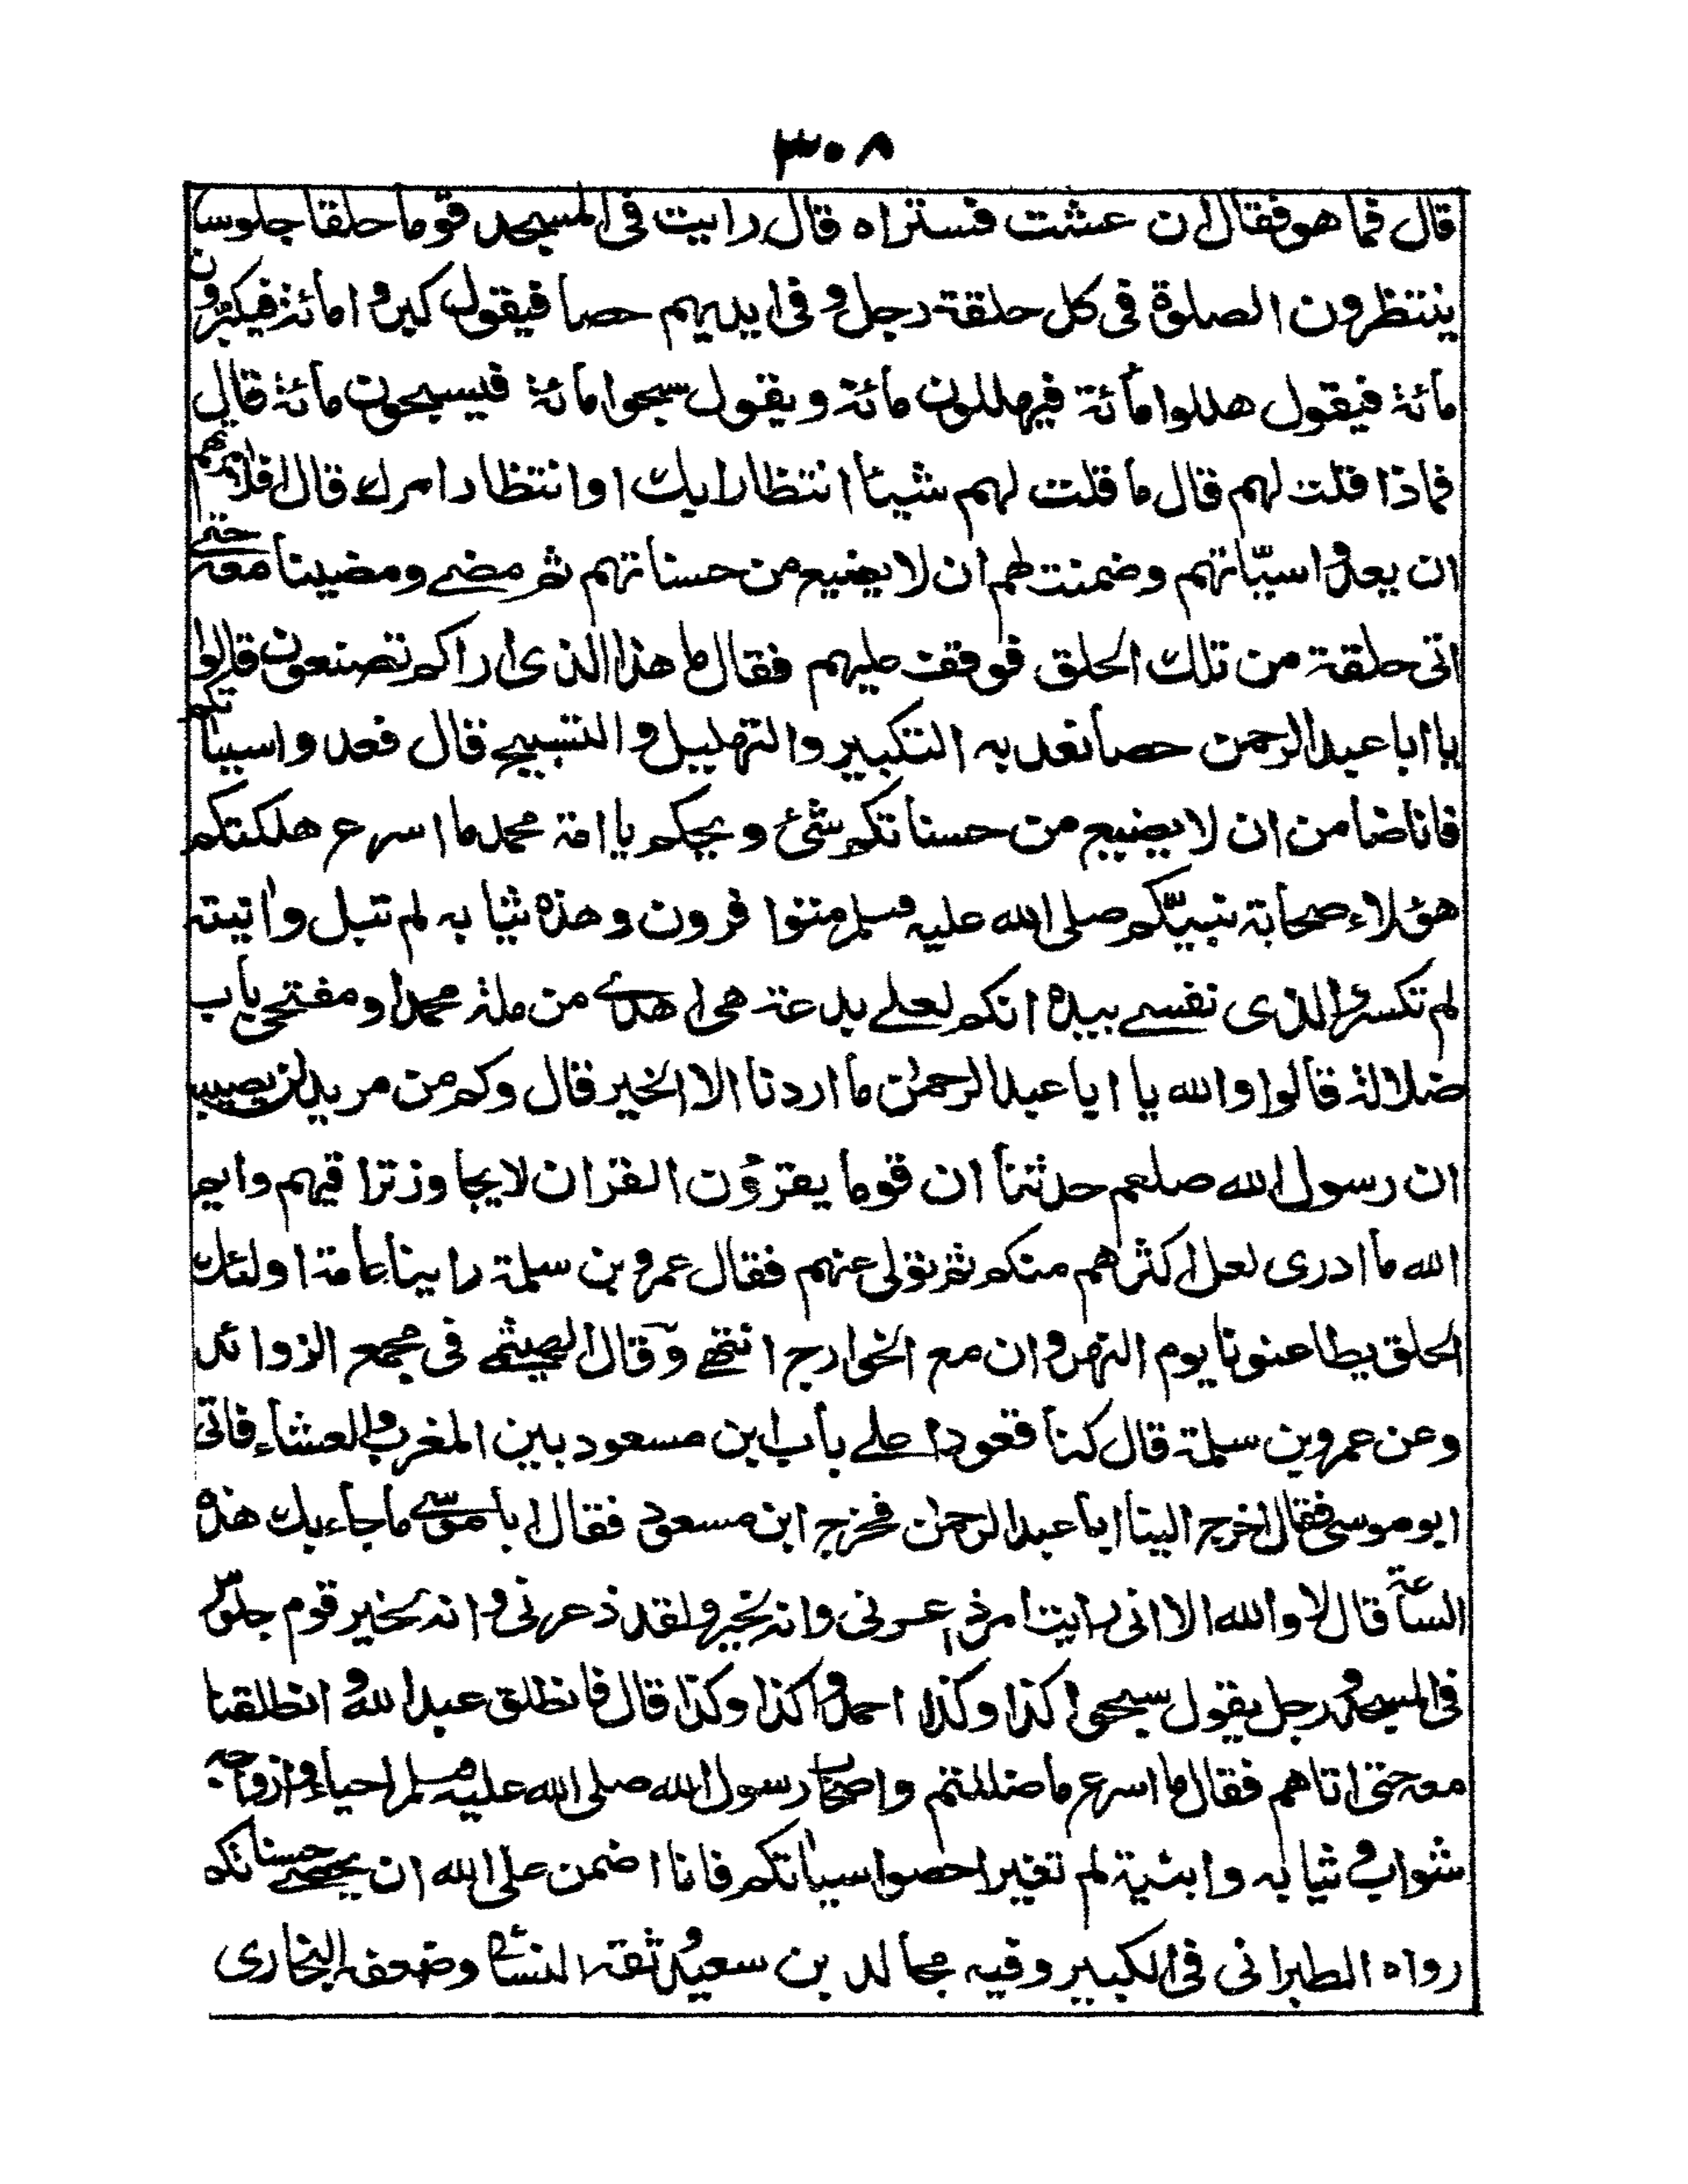 ٣٠٨
قال فما هو فقال ان عشت فستراه قال رايت فى المسجد قوما حلقا جلوسا
ينتظرون الصلوة فى كل حلقة رجل و فى ايديهم حصا فيقول كبروا مائة فيكبرون
مائة فيقول هللوا مائة فيهللون مائة و يقول سبحوا مائة فيسبحون مائة قال
فماذا قلت لهم قال ما قلت لهم شيئا انتظار رايك او انتظار امرك قال افلا امرتهم
ان يعدوا سيّاتهم وضمنت لهم ان لا يضيع من حسناتهم ثم مضے ومضينا معه حتے
اتى حلقة من تلك الحلق فوقف عليهم فقال ما هذا الذى اراكم تصنعون قالوا
يا ابا عبد الرحمن حصا نعد به التكبير والتهليل و التسبيح قال فعدوا سيئاتكم
فانا ضامن ان لا يضيع من حسناتكم شئ ويحكم يا امة محمد ما اسرع هلكتكم
هؤلاء صحابة نبيّكم صلى الله عليه وسلم متوافرون وهذه ثيابه لم تبل وانيته
لم تكسر والذى نفسے بيده انكم لعلے بدعة هى اهدے من ملة محمد او مفتحى باب
ضلالة قالوا والله يا ابا عبد الرحمٰن ما اردنا الا الخير قال وكم من مريد لن يصيب
ان رسول الله صلعم حدثنا ان قوما يقرؤن القران لا يجاوز تراقيهم وايم
الله ما ادرى لعل اكثرهم منكم ثم تولى عنهم فقال عمرو بن سلمة راينا عامة اولئك
الحلق يطاعنونا يوم النهروان مع الخوارج انتهے وقال الهيثمے فى مجمع الزوائد
وعن عمرو بن سلمة قال كنا قعودا علے باب ابن مسعود بين المغرب والعشاء فاتى
ابو موسى فقال اخرج الينا ابا عبد الرحمٰن فخرج ابن مسعود فقال ابا موسے ما جاء بك هذه
الساعة قال لا والله الا انى رايت امرا ذعرنى وانه لخير ولقد ذعرنى و انه لخير قوم جلوس
فى المسجد ورجل يقول سبحوا كذا وكذا احمدوا كذا وكذا قال فانطلق عبد الله و انطلقنا
معه حتى اتاهم فقال ما اسرع ما ضللتم واصحاب رسول الله صلى الله عليه وسلم احياء وازواجه
شواب و ثيابه وابنية لم تغير احصوا سياتكم فانا اضمن على الله ان يحصے حسناتكم
رواه الطبرانى فى الكبير وفيه مجالد بن سعيد وثقه النسائے وضعفه البخارى